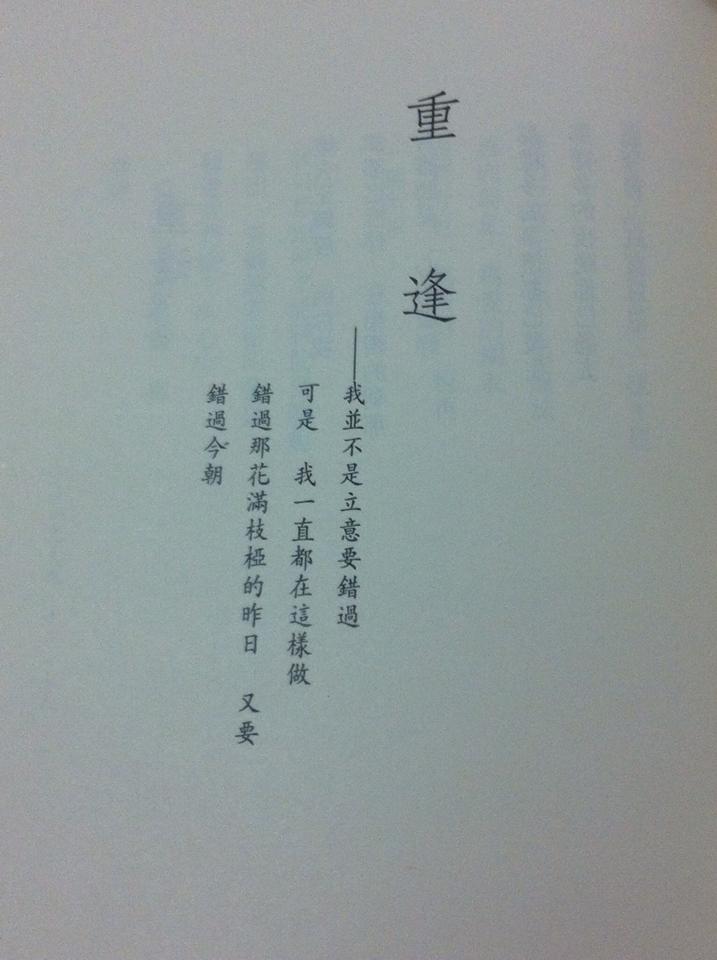 重逢
——我並不是立意要錯過
可是　我一直都在這樣做
錯過那花滿枝椏的昨日　又要
錯過今朝